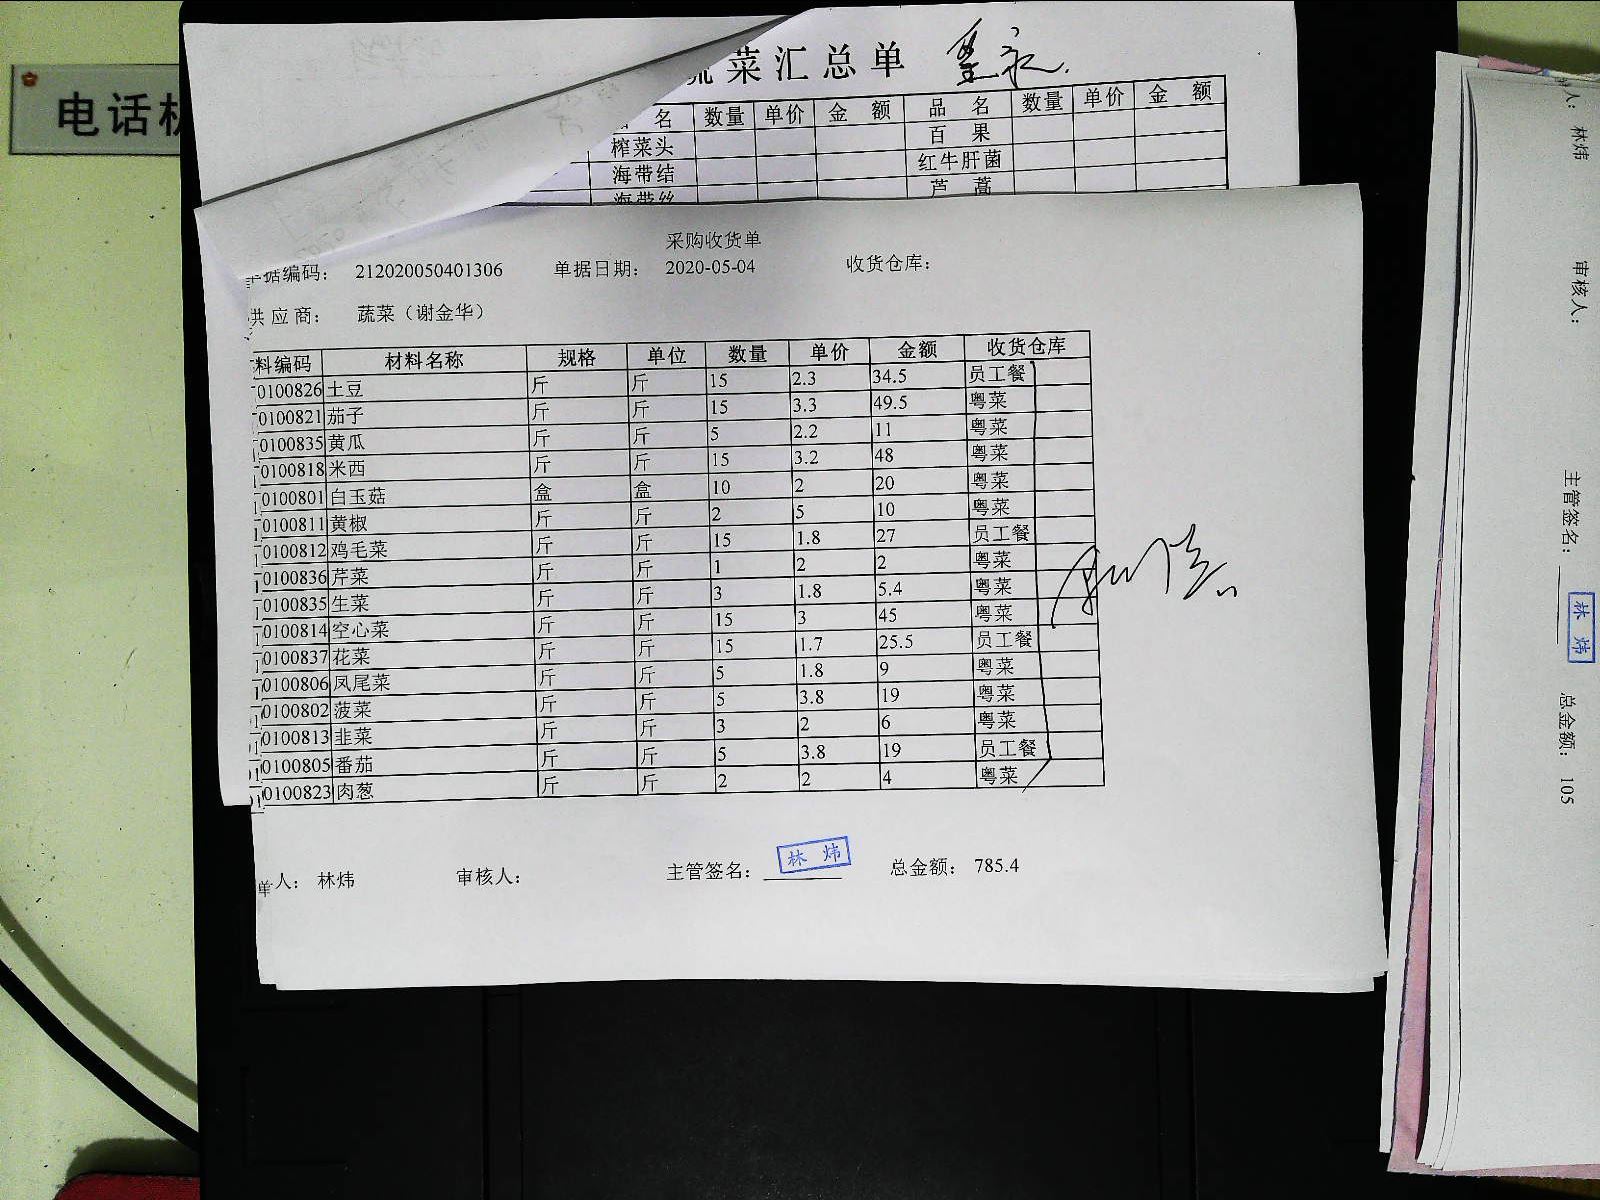 电话机
蔬菜汇总单
品 名 数量 单价 金 额 品 名 数量 单价 金 额
榨菜头 百 果
海带结 红牛肝菌
海带丝 芦 蒿
采购收货单
单据编码： 212020050401306 单据日期： 2020-05-04 收货仓库：
供应商： 蔬菜（谢金华）
料编码 材料名称 规格 单位 数量 单价 金额 收货仓库
0100826 土豆 斤 斤 15 2.3 34.5 员工餐
0100821 茄子 斤 斤 15 3.3 49.5 粤菜
0100835 黄瓜 斤 斤 5 2.2 11 粤菜
0100818 米西 斤 斤 15 3.2 48 粤菜
0100801 白玉菇 盒 盒 10 2 20 粤菜
0100811 黄椒 斤 斤 2 5 10 粤菜
0100812 鸡毛菜 斤 斤 15 1.8 27 员工餐
0100836 芹菜 斤 斤 1 2 2 粤菜
0100835 生菜 斤 斤 3 1.8 5.4 粤菜
0100814 空心菜 斤 斤 15 3 45 粤菜
0100837 花菜 斤 斤 15 1.7 25.5 员工餐
0100806 凤尾菜 斤 斤 5 1.8 9 粤菜
0100802 菠菜 斤 斤 5 3.8 19 粤菜
0100813 韭菜 斤 斤 3 2 6 粤菜
0100805 番茄 斤 斤 5 3.8 19 员工餐
0100823 肉葱 斤 斤 2 2 4 粤菜
单人： 林炜 审核人： 主管签名： 林炜 总金额： 785.4
人： 林炜 审核人： 主管签名： 林炜 总金额： 105